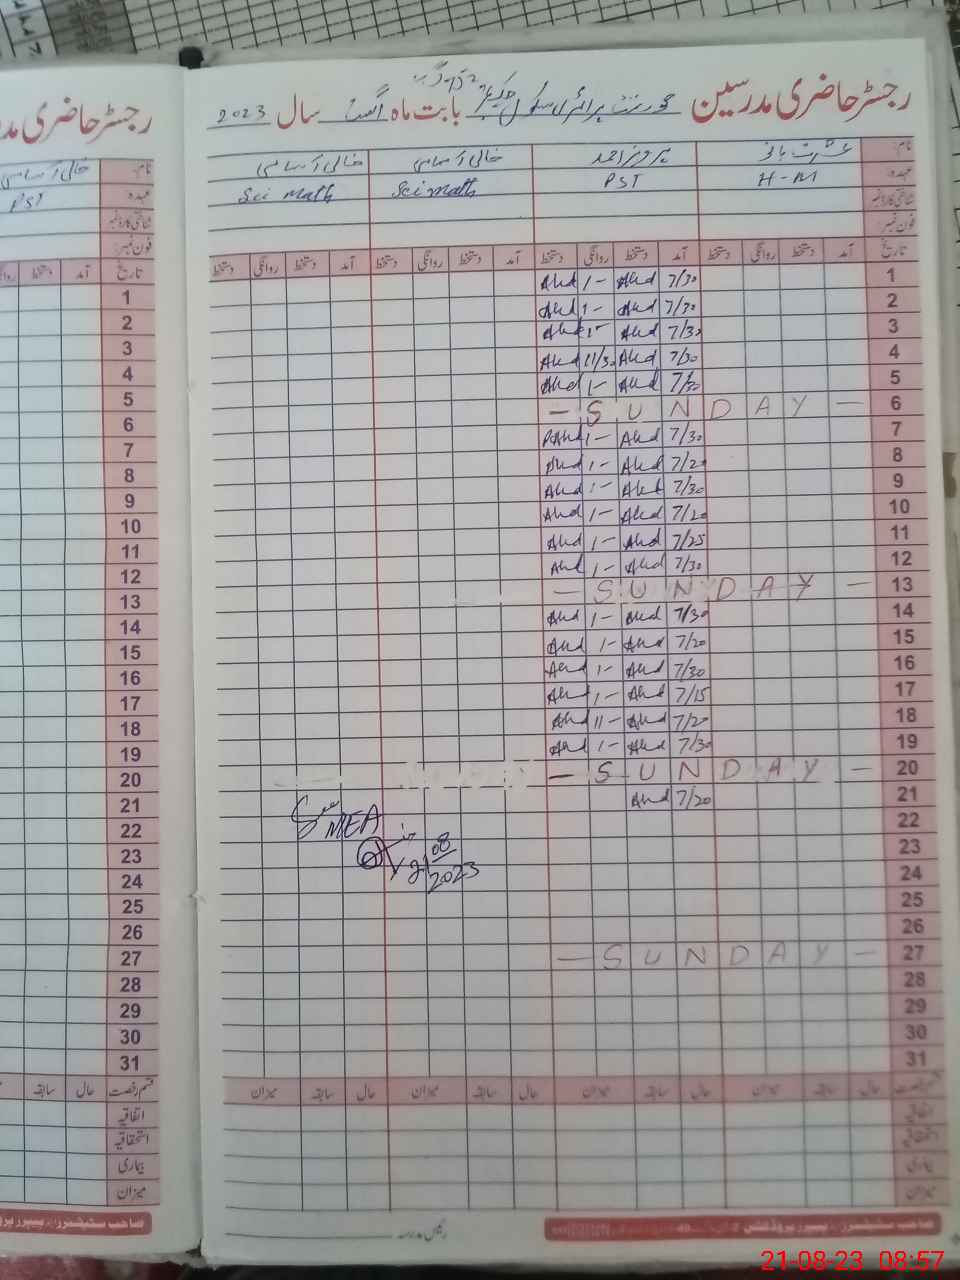 رجسٹر حاضری مدرسین گورنمنٹ پرائمری سکول بابت ماہ اگست سال 2023
رجسٹر حاضری مد
نام: عشرت بانو پرویز احمد خالی آسامی خالی آسامی
عہدہ: H-M PST Sci math Sci Math
شناختی کارڈ نمبر
فون نمبر:
تاریخ آمد دستخط روانگی دستخط آمد دستخط روانگی دستخط آمد دستخط روانگی دستخط آمد دستخط روانگی دستخط
1 7/30 Ahd 1- Ahd
2 7/30 Ahd 1- Ahd
3 7/30 Ahd 1- Ahd
4 7/30 Ahd 11/30 Ahd
5 7/30 Ahd 1- Ahd
6 - SUNDAY -
7 7/30 Ahd 1- Ahd
8 7/20 Ahd 1- Ahd
9 7/30 Ahd 1- Ahd
10 7/20 Ahd 1- Ahd
11 7/25 Ahd 1- Ahd
12 7/30 Ahd 1- Ahd
13 - SUNDAY -
14 7/30 Ahd 1- Ahd
15 7/20 Ahd 1- Ahd
16 7/30 Ahd 1- Ahd
17 7/15 Ahd 1- Ahd
18 7/20 Ahd 11- Ahd
19 7/30 Ahd 1- Ahd
20 - SUNDAY -
21 7/20 Ahd
22
23
24
25
26
27 - SUNDAY -
28
29
30
31
See
MEA
21/08
2023
قسم رخصت حال سابقہ میزان حال سابقہ میزان حال سابقہ میزان حال سابقہ میزان
اتفاقیہ
استحقاقیہ
بیماری
میزان
رئیس مدرسہ
صاحب سٹیشنرز، پیپرز پروڈکٹس
نام: خالی آسامی
عہدہ: PST
شناختی کارڈ نمبر
فون نمبر:
تاریخ آمد دستخط
1
2
3
4
5
6
7
8
9
10
11
12
13
14
15
16
17
18
19
20
21
22
23
24
25
26
27
28
29
30
31
قسم رخصت حال سابقہ
اتفاقیہ
استحقاقیہ
بیماری
میزان
صاحب سٹیشنرز، پیپرز پرو
21-08-23 08:57